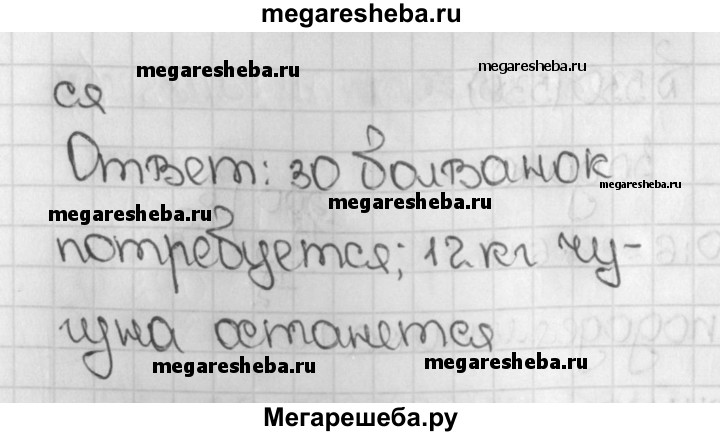 megaresheba.ru
megaresheba.ru
megaresheba.ru
ся
Ответ: 30 болванок
megaresheba.ru
megaresheba.ru
megaresheba.ru
потребуется; 12 кг чу-
гуна останется
megaresheba.ru
megaresheba.ru
Мегарешеба.ру